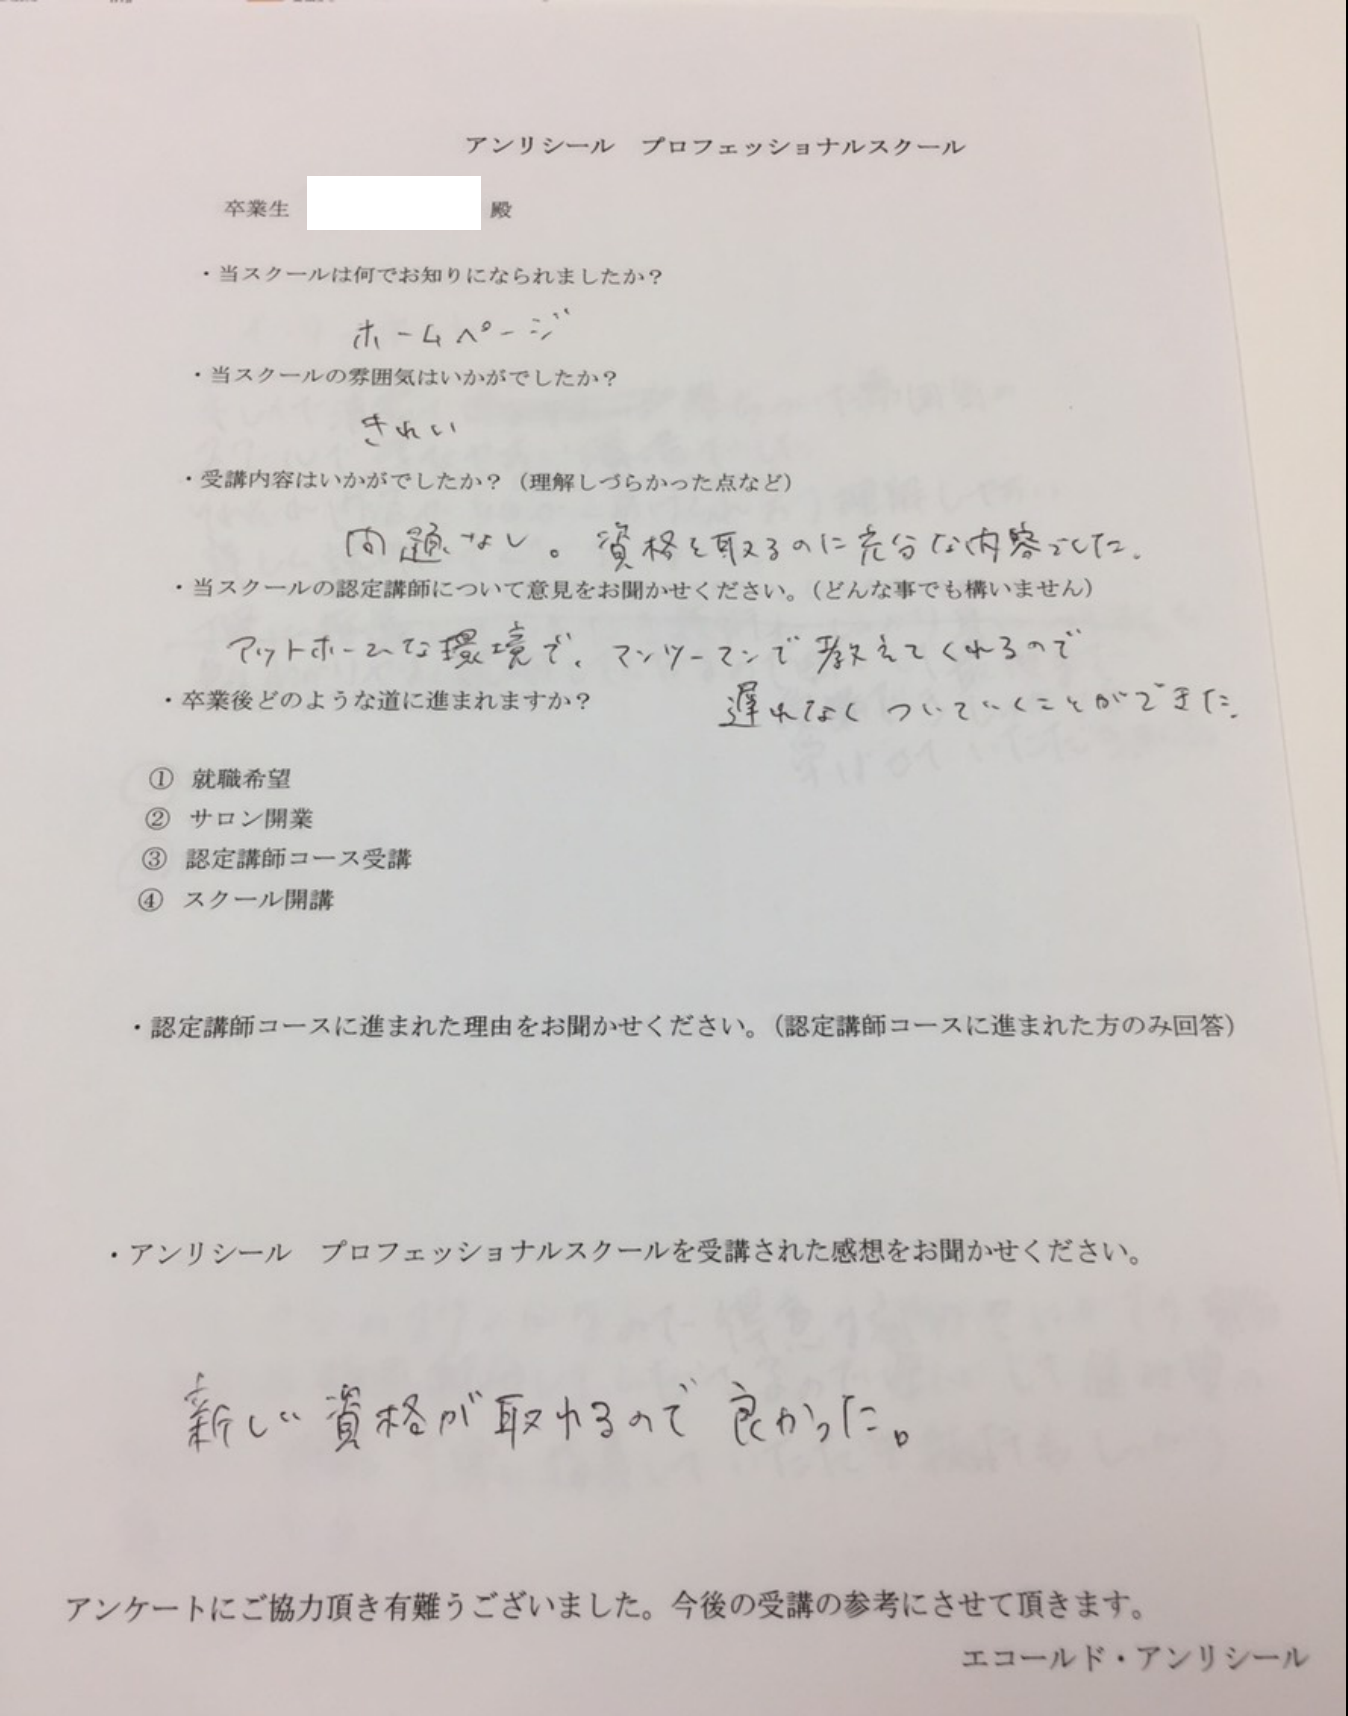 アンリシール　プロフェッショナルスクール
卒業生　殿
・当スクールは何でお知りになられましたか？
ホームページ
・当スクールの雰囲気はいかがでしたか？
きれい
・受講内容はいかがでしたか？（理解しづらかった点など）
問題なし。資格を取るのに充分な内容でした.
・当スクールの認定講師について意見をお聞かせください。（どんな事でも構いません）
アットホームな環境で、マンツーマンで教えてくれるので
・卒業後どのような道に進まれますか？
遅れなくついていくことができた.
① 就職希望
② サロン開業
③ 認定講師コース受講
④ スクール開講
・認定講師コースに進まれた理由をお聞かせください。（認定講師コースに進まれた方のみ回答）
・アンリシール　プロフェッショナルスクールを受講された感想をお聞かせください。
新しい資格が取れるので良かった。
アンケートにご協力頂き有難うございました。今後の受講の参考にさせて頂きます。
エコールド・アンリシール